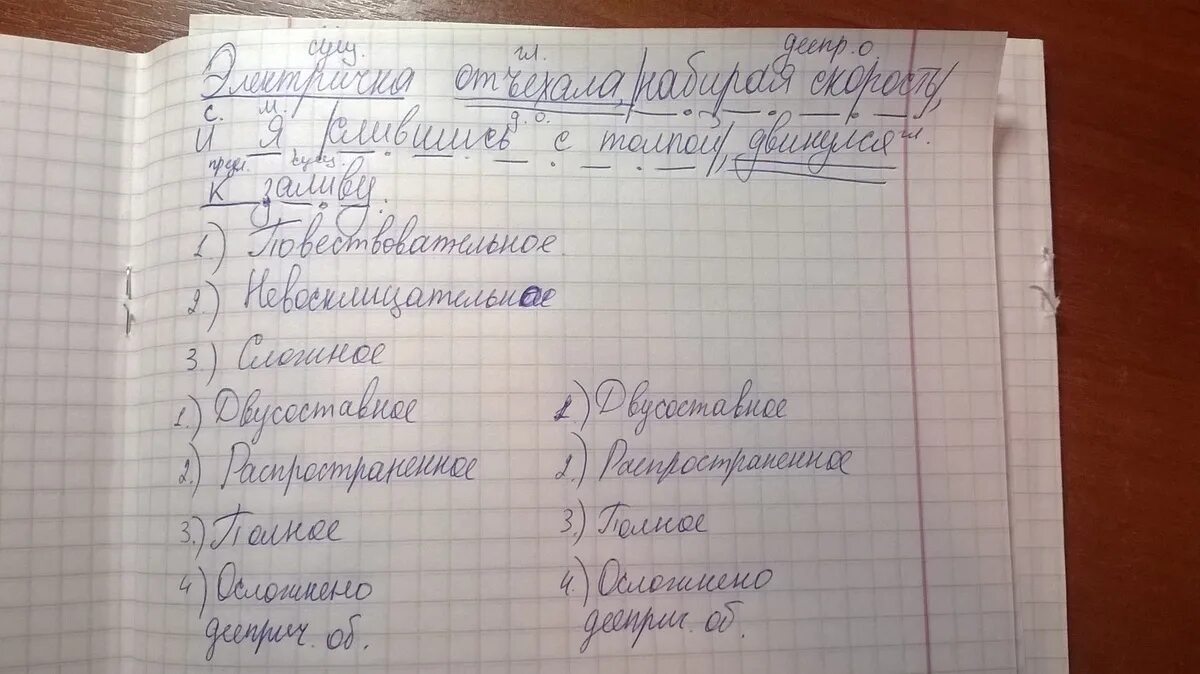 сущ. гл. деепр.о
Электричка отъехала, набирая скорость,
с. м. д.о.
и я, слившись с толпой, двинулся гл.
предл. сущ.
к заливу.
1.) Повествовательное.
2.) Невосклицательное
3.) Сложное
1.) Двусоставное 1.) Двусоставное
2.) Распространенное 2.) Распространенное
3.) Полное 3.) Полное
4) Осложнено 4.) Осложнено
дееприч. об. дееприч. об.